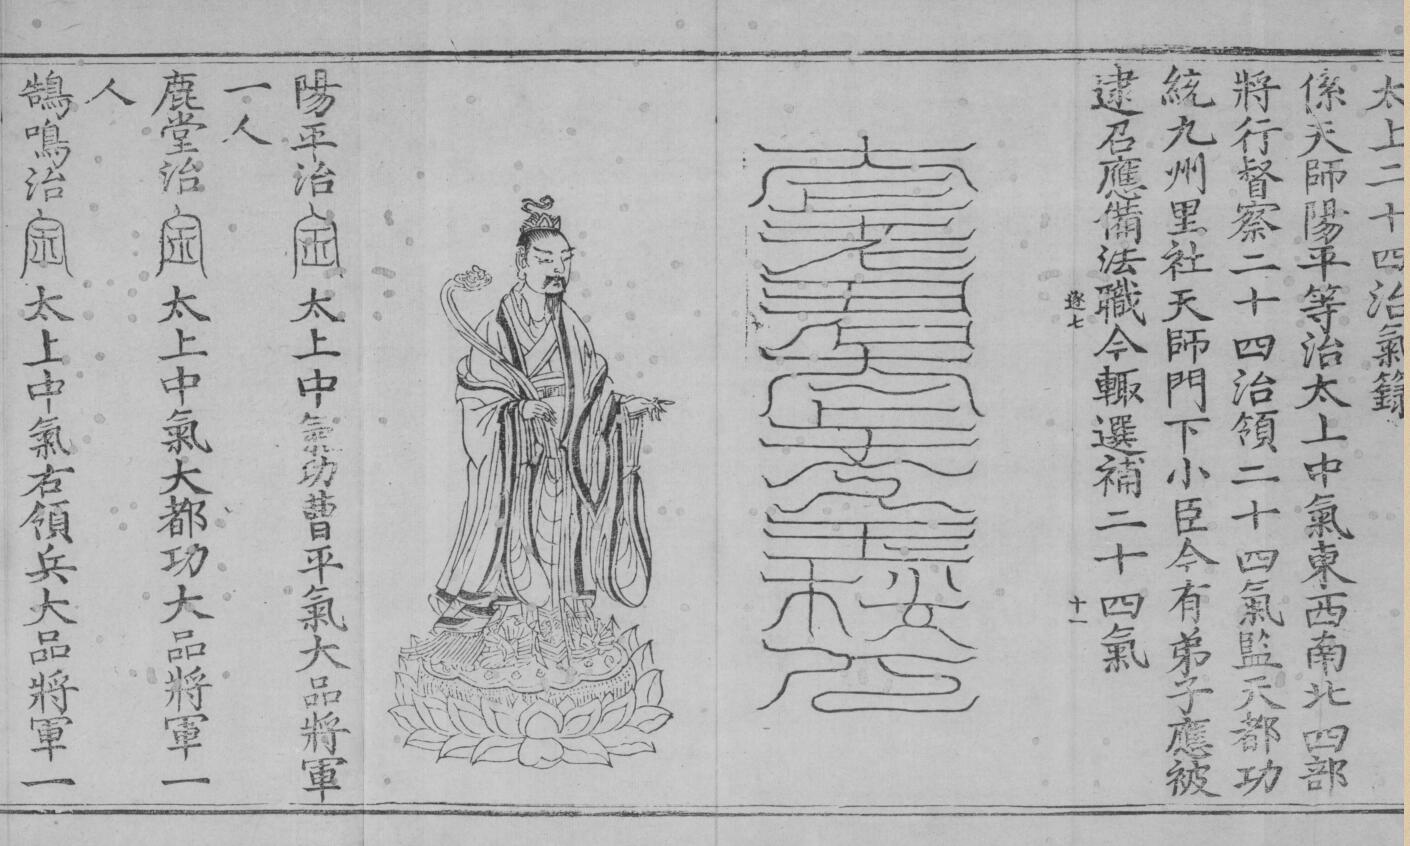 太上二十四治氣籙
係天師陽平等治太上中氣東西南北四部
將行督察二十四治領二十四氣監天都功
統九州里社天師門下小臣今有弟子應被
逮召應備法職今輙選補二十四氣
逐七
十一
陽平治太上中氣功曹平氣大品將軍
一人
鹿堂治太上中氣大都功大品將軍一
人
鵠鳴治太上中氣右領兵大品將軍一